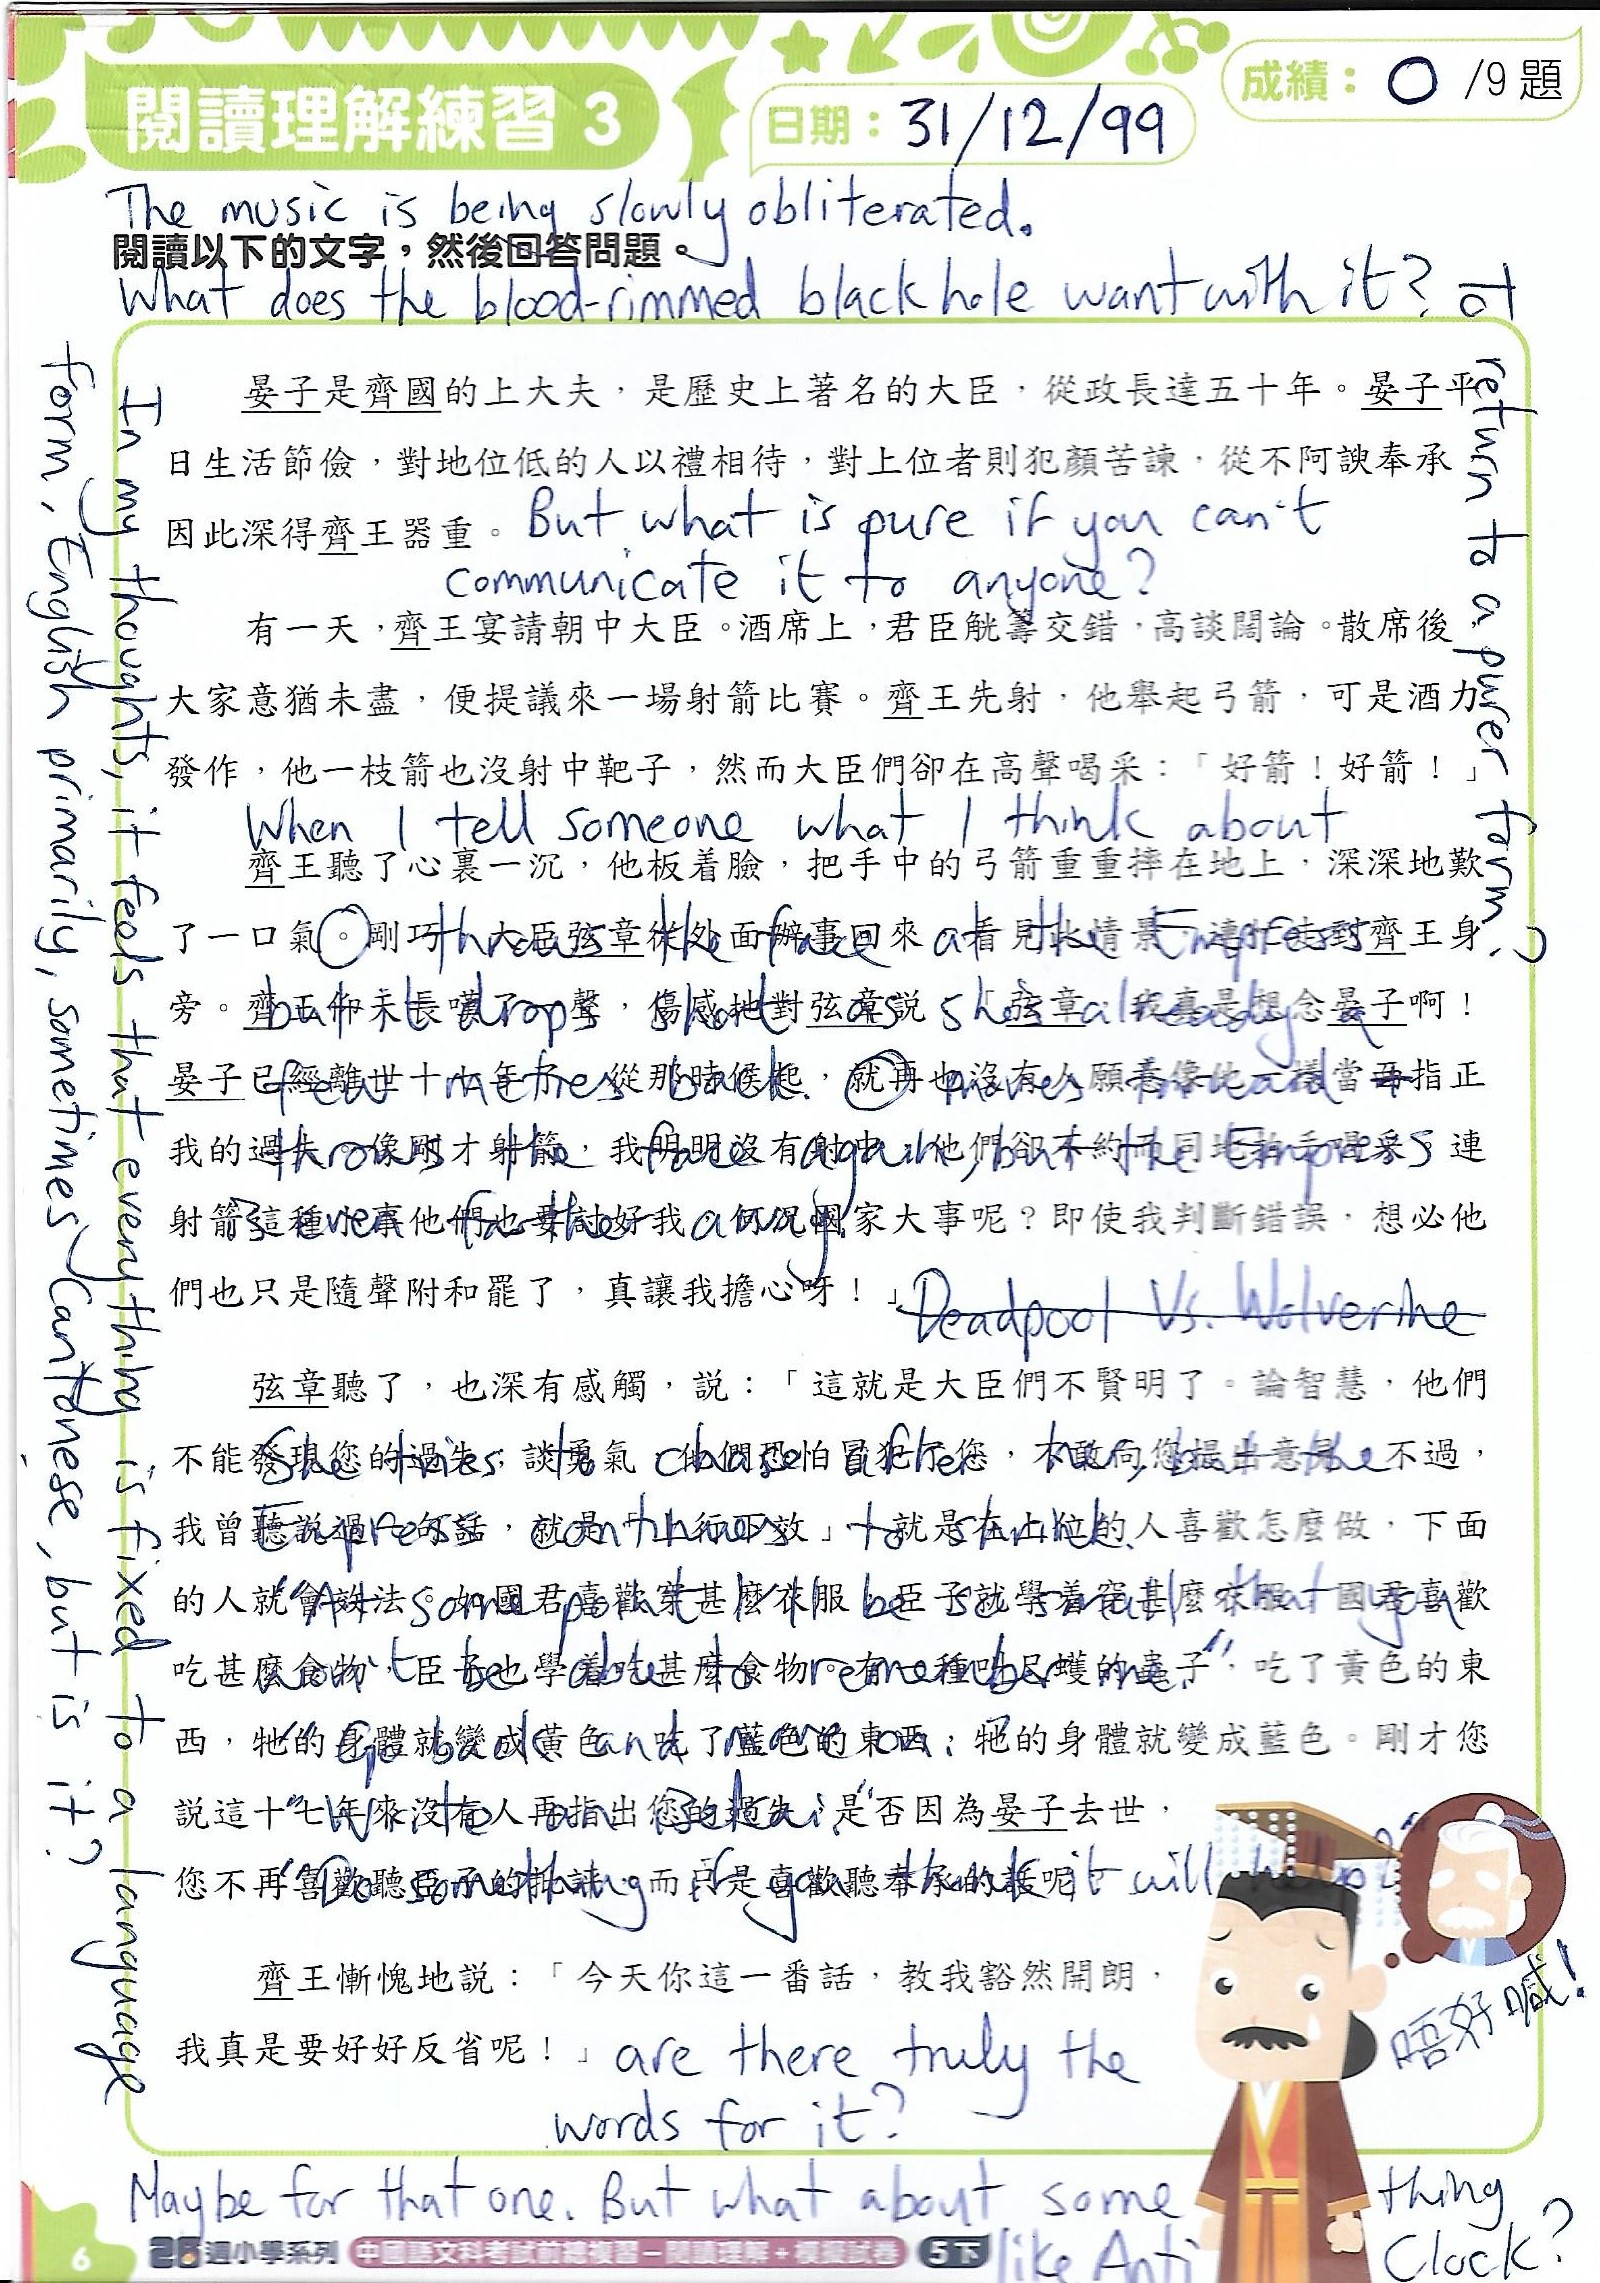 閱讀理解練習 3
日期：31/12/99
成績：0 /9 題
The music is being slowly obliterated.
閱讀以下的文字，然後回答問題。
What does the blood-rimmed black hole want with it? To
return to a purer form?
晏子是齊國的上大夫，是歷史上著名的大臣，從政長達五十年。晏子平
日生活節儉，對地位低的人以禮相待，對上位者則犯顏苦諫，從不阿諛奉承
因此深得齊王器重。
But what is pure if you can't
communicate it to anyone?
有一天，齊王宴請朝中大臣。酒席上，君臣觥籌交錯，高談闊論。散席後
大家意猶未盡，便提議來一場射箭比賽。齊王先射，他舉起弓箭，可是酒力
發作，他一枝箭也沒射中靶子，然而大臣們卻在高聲喝采：「好箭！好箭！」
When I tell someone what I think about
齊王聽了心裏一沉，他板着臉，把手中的弓箭重重摔在地上，深深地歎
了一口氣。剛巧，大臣弦章從外面辦事回來，看見此情景，連忙走到齊王身
throws the face at the Empress
旁。齊王仰天長嘆了一聲，傷感地對弦章說：「弦章，我真是想念晏子啊！
but it drops short as she's already a
晏子已經離世十七年了，從那時候起，就再也沒有人願意像他一樣當面指正
few metres back. moves forward
我的過失。像剛才射箭，我明明沒有射中，他們卻不約而同地拍手喝采。連
throws the face again, but the Empress
射箭這種小事他們也要討好我，何況國家大事呢？即使我判斷錯誤，想必他
is even farther away.
們也只是隨聲附和罷了，真讓我擔心呀！」
Deadpool Vs. Wolverine
弦章聽了，也深有感觸，說：「這就是大臣們不賢明了。論智慧，他們
不能發現您的過失；談勇氣，他們恐怕冒犯了您，不敢向您提出意見。不過，
She tries to chase after her, but the
我曾聽說過一句話，就是「上行下效」，就是在上位的人喜歡怎麼做，下面
Empress continues to shrink.
的人就會效法。如國君喜歡穿甚麼衣服，臣子就學着穿甚麼衣服；國君喜歡
"At some point I'll be so small that you
吃甚麼食物，臣子也學着吃甚麼食物。有一種叫尺蠖的蟲子，吃了黃色的東
won't be able to remember me."
西，牠的身體就變成黃色；吃了藍色的東西，牠的身體就變成藍色。剛才您
"Go back and move on."
說這十七年來沒有人再指出您的過失，是否因為晏子去世，
"Write an
您不再喜歡聽臣子的批評，而只是喜歡聽奉承的話呢？」
"Do something if you think it will help?"
齊王慚愧地說：「今天你這一番話，教我豁然開朗，
我真是要好好反省呢！」
唔好喊！
In my thoughts, it feels that everything is fixed to a language
form, English primarily, sometimes Cantonese, but is it?
are there truly the
words for it?
Maybe for that one. But what about some thing
like Anti Clock?
6
週小學系列 中國語文科考試前總複習－閱讀理解＋模擬試卷 5下